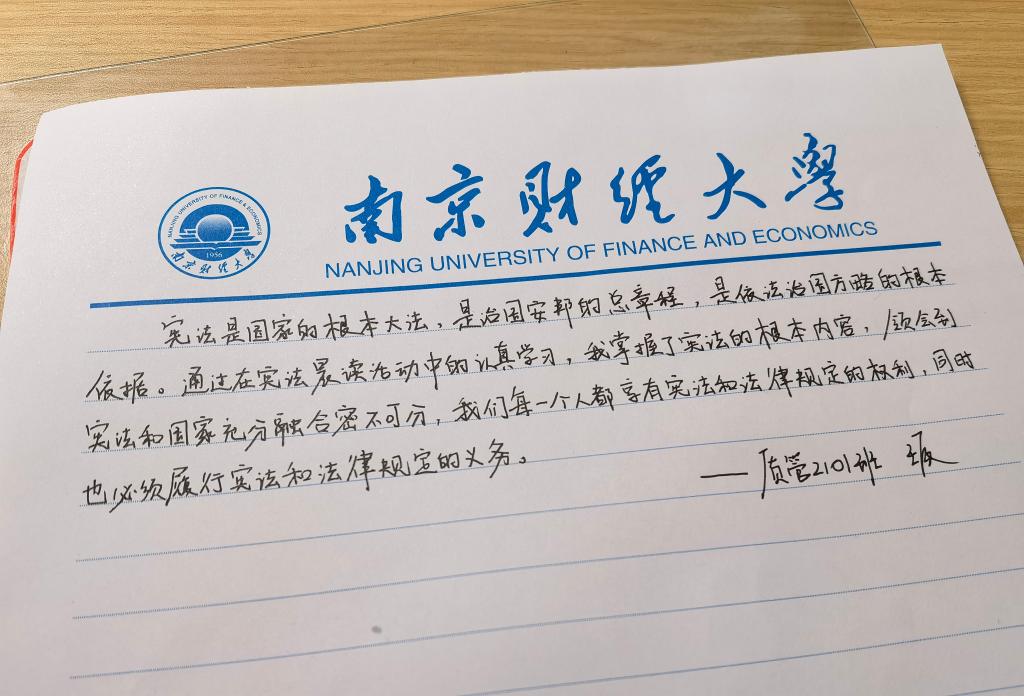 南京财经大學
NANJING UNIVERSITY OF FINANCE AND ECONOMICS
NANJING UNIVERSITY OF FINANCE & ECONOMICS
1956
南京财经大学
宪法是国家的根本大法，是治国安邦的总章程，是依法治国方略的根本
依据。通过在宪法晨读活动中的认真学习，我掌握了宪法的根本内容，领会到
宪法和国家充分融合密不可分，我们每一个人都享有宪法和法律规定的权利，同时
也必须履行宪法和法律规定的义务。
——质管2101班